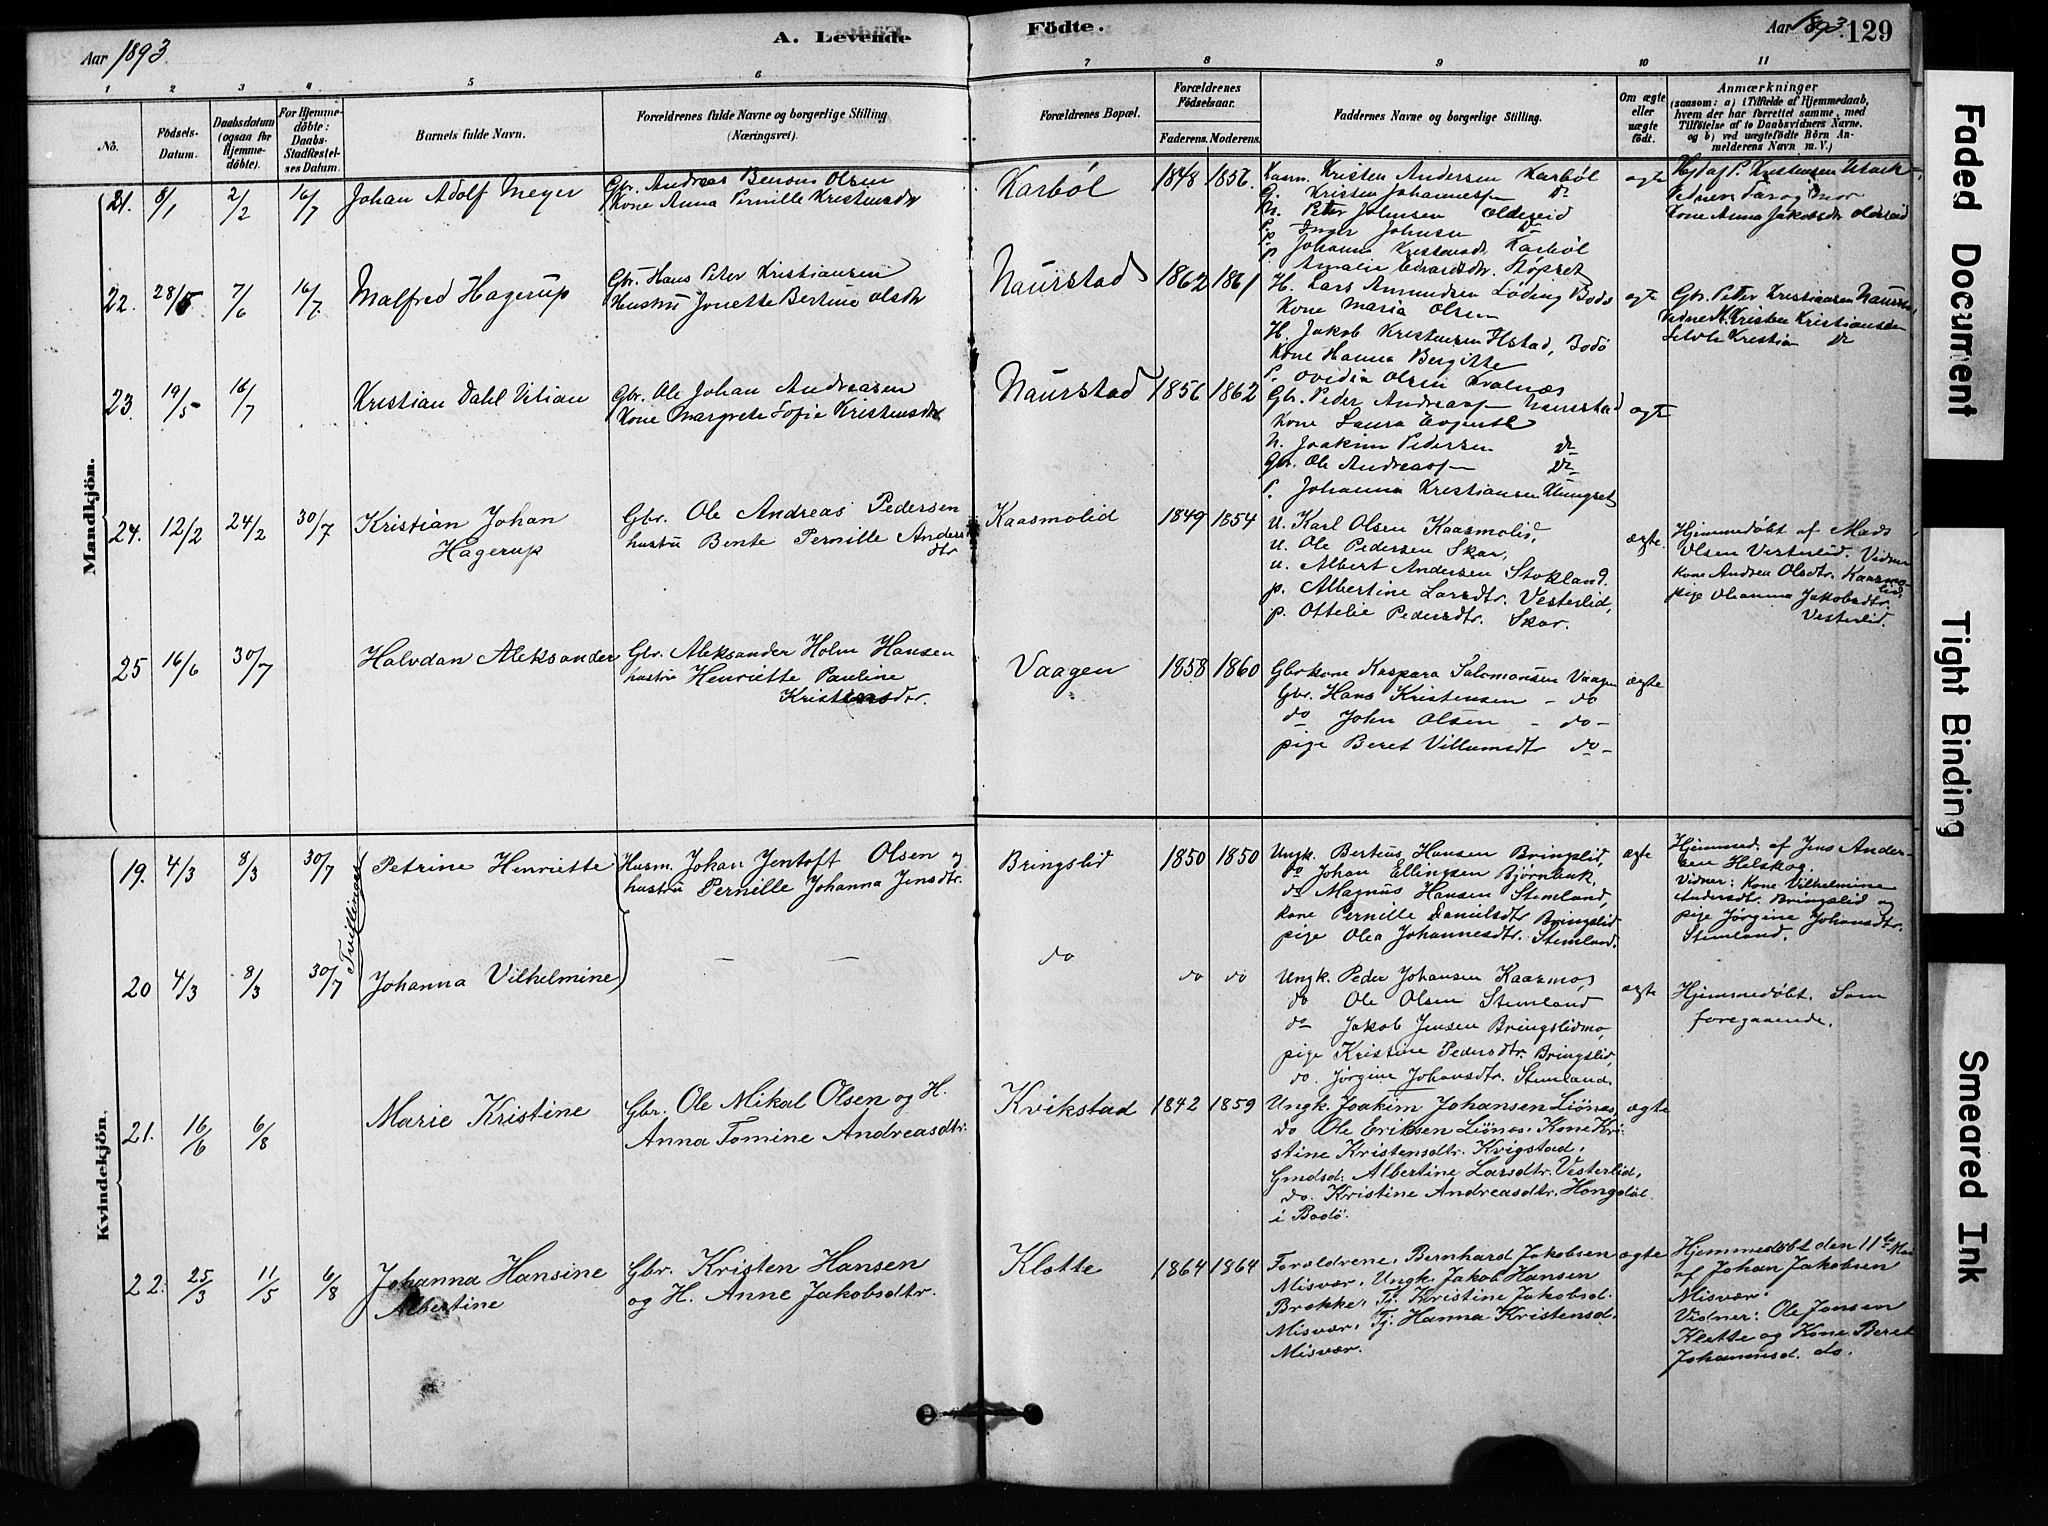 Aar 1893
A. Levende
Födte.
Aar 1893.
129
1 2 3 4 5 6 7 8 9 10 11
No.
Födsels-
Datum.
Daabsdatum
(ogsaa for
Hjemme-
döbte).
For Hjemme-
döbte:
Daabs-
Stadfæstel-
ses Datum.
Barnets fulde Navn.
Forældrenes fulde Navne og borgerlige Stilling
(Næringsvei).
Forældrenes Bopæl.
Forældrenes
Födselsaar.
Faderens. Moderens.
Faddernes Navne og borgerlige Stilling.
Om ægte
eller
uægte
födt.
Anmærkninger
(saasom: a) i Tilfælde af Hjemmedaab,
hvem der har forrettet samme, med
Tilföielse af to Daabsvidners Navne,
og b) ved uægtefödte Börn An-
melderens Navn m. V.)
Mandkjön.
21. 8/1 2/2 16/7 Johan Adolf Meyer
Gbr. Andreas Benoni Olsen
Kone Anna Pernille Kristensdtr
Karbøl 1848 1856
Kristen Andersen Karbøl
G. Kristen Johannessen do
U. Peter Johnsen Oldereid
P. Inger Johnsen do
p. Johanna Kristensdtr Karbøl
p. Amalie Edvardsdtr. Støpset
ægte
Hjd af P. Kristensen
Vidner Far og Mor
Kone Anna Jakobsdtr Oldereid
22. 28/5 7/6 16/7 Malfred Hagerup
Gbr. Hans Peter Kristiansen
Hustru Jonette Bertine Olsdtr
Naurstad 1862 1861
H. Lars Amundsen Løding Bodø
Kone Maria Olsen
H. Jakob Kristensen Ilstad, Bodø
Kone Hanna Bergitte
P. Ovidia Olsen Kvalnæs
ægte
Gbr. Peter Kristiansen Naurstad
Vidner Kristen Kristiansen
Kristian do
23. 19/5 16/7 Kristian Dahl Vitian
Gbr. Ole Johan Andreasen
Kone Margrete Sofie Kristensdtr
Naurstad 1856 1862
Gbr. Peder Andreassen Naurstad
Kone Laura
U. Joakim Pedersen do
Gbr. Ole Andreassen do
P. Johanna Kristiansen Klungset
ægte
24. 12/2 24/2 30/7 Kristian Johan
Hagerup
Gbr. Ole Andreas Pedersen
hustru Bente Pernille Anders
dtr
Kaasmolid 1849 1854
U. Karl Olsen Kaasmolid,
U. Ole Pedersen Skar,
U. Albert Andersen Stokland.
p. Albertine Larsdtr. Vesterlid,
p. Ottelie Pedersdtr. Skar.
ægte.
Hjemmedøbt af Mads
Olsen Vesterlid. Vidner
Kone Andrea Olsdtr. Kaasmo-
lid,
pige Oleanna Jakobsdtr.
Vesterlid.
25 16/6 30/7 Halvdan Aleksander
Gbr. Aleksander Holm Hansen
hustru Henriette Pauline
Kristensdtr.
Vaagen 1858 1860
Gbrkone Kaspara Salomonsen Vaagen
Gbr. Hans Kristensen - do
do John Olsen - do -
pige Beret Villumsdtr do -
ægte
Kvindekjön.
19. 4/3 8/3 30/7 Petrine Henriette
Tvillinger
Husm. Johan Jentoft Olsen og
hustru Pernille Johanna Jensdtr.
Bringslid 1850 1850
Ungk. Berteus Hansen Bringslid,
do Johan Ellingsen Bjørnbak,
do Magnus Hansen Stemland,
kone Pernille Danielsdtr Bringslid
pige Olea Johannesdtr. Stemland.
ægte
Hjemmed. af Jens Ander-
sen Helskog.
Vidner: Kone Vilhelmine
Andersdtr. Bringslid og
pige Jørgine Johansdtr.
Stemland.
20 4/3 8/3 30/7 Johanna Vilhelmine
— —
do do do
Ungk. Peder Johansen Kaasmo,
do Ole Olsen Stemland
do Jakob Jensen Bringslidmo,
pige Kristine Pedersdtr. Bringslid,
do. Jørgine Johansdtr. Stemland.
ægte
Hjemmedøbt. Som
foregaaende.
21. 16/6 6/8 Marie Kristine
Gbr. Ole Mikal Olsen og H.
Anna Tomine Andreasdtr.
Kvikstad 1842 1859
Ungk. Joakim Johansen Liønes,
do Ole Eriksen Liønes. Kone Kri-
stine Kristensdtr. Kvigstad,
Gmdsd. Albertine Larsdtr. Vesterlid,
do. Kristine Andreasdtr. Hongdal
i Bodø.
ægte
22. 25/3 11/5 6/8 Johanna Hansine
Albertine
Gbr. Kristen Hansen
og H. Anne Jakobsdtr.
Klette 1864 1864
Forældrene, Bernhard Jakobsen
Misvær, Ungk. Jakob Hansen
Brekke, Tj. Kristine Jakobsd.
Misvær, Tj. Hanna Kristensd.
Misvær.
ægte
Hjemmedøbt den 11te Mai
af Johan Jakobsen
Misvær.
Vidner: Ole Jensen
Klette og Kone Beret
Johannsd. do.
Faded Document
Tight Binding
Smeared Ink